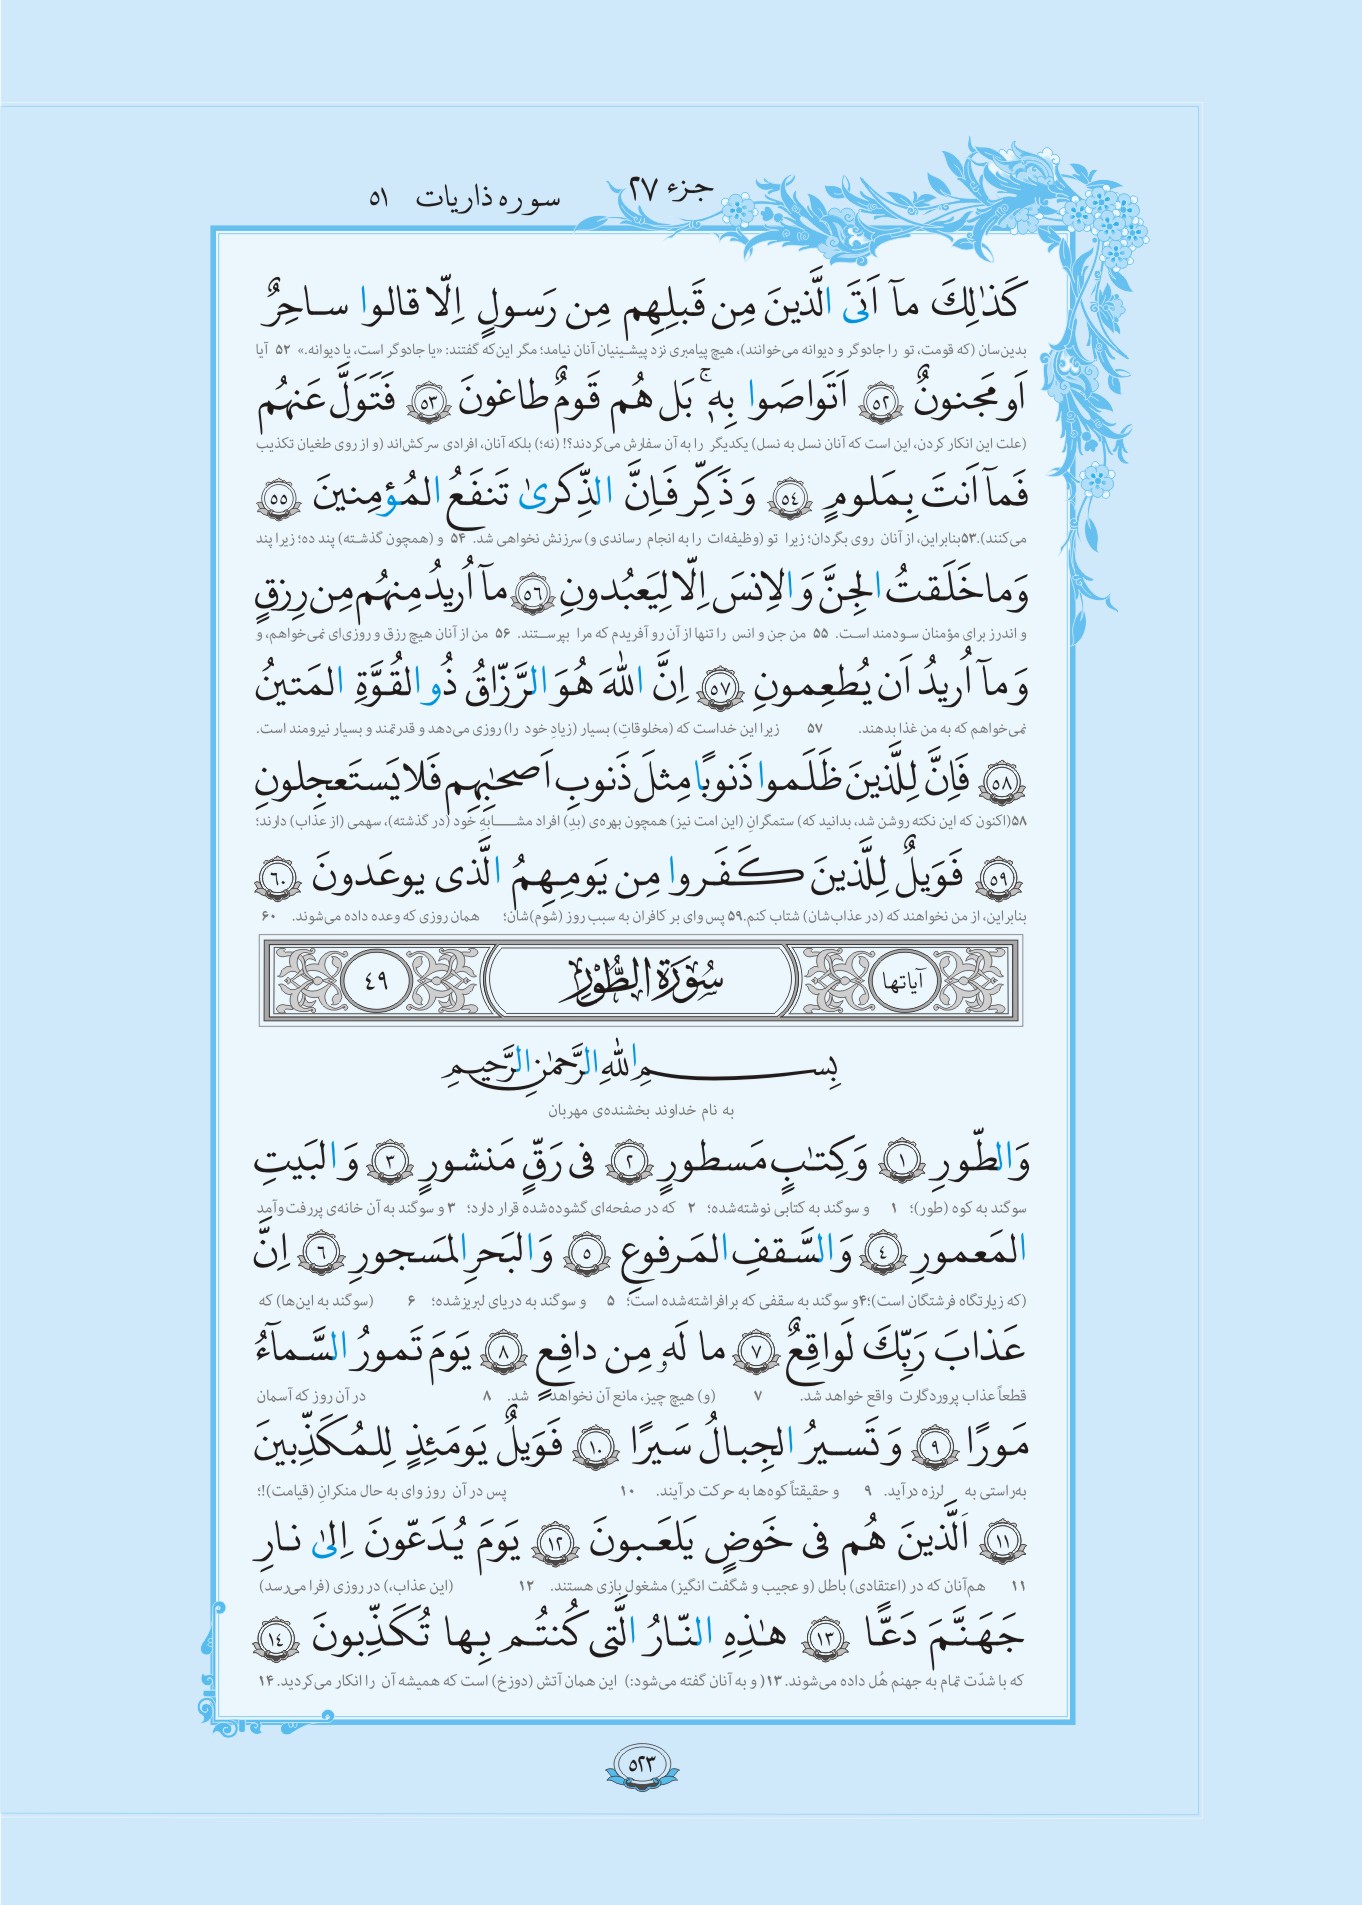 جزء ۲۷
سوره ذاریات ۵۱
كَذٰلِكَ مآ اَتَى الَّذينَ مِن قَبلِهِم مِن رَسولٍ اِلّا قالوا ساحِرٌ
بدین‌سان (که قومت، تو را جادوگر و دیوانه می‌خوانند)، هیچ پیامبری نزد پیشینیان آنان نیامد؛ مگر این‌که گفتند: «یا جادوگر است، یا دیوانه.» ۵۲ آیا
اَو مَجنونٌ ﴿٥٢﴾ اَتَواصَوا بِهٖۚ بَل هُم قَومٌ طاغونَ ﴿٥٣﴾ فَتَوَلَّ عَنهُم
(علت این انکار کردن، این است که آنان نسل به نسل) یکدیگر را به آن سفارش می‌کردند؟! (نه؛) بلکه آنان، افرادی سرکش‌اند (و از روی طغیان تکذیب
فَمآ اَنتَ بِمَلومٍ ﴿٥٤﴾ وَ ذَكِّر فَاِنَّ الذِّكرىٰ تَنفَعُ المُؤمِنينَ ﴿٥٥﴾
می‌کنند).۵۳بنابراین، از آنان روی بگردان؛ زیرا تو (وظیفه‌ات را به انجام رساندی و) سرزنش نخواهی شد. ۵۴ و (همچون گذشته) پند ده؛ زیرا پند
وَ ما خَلَقتُ الجِنَّ وَ الاِنسَ اِلّا لِيَعبُدونِ ﴿٥٦﴾ مآ اُريدُ مِنهُم مِن رِزقٍ
و اندرز برای مؤمنان سودمند است. ۵۵ من جن و انس را تنها از آن رو آفریدم که مرا بپرستند. ۵۶ من از آنان هیچ رزق و روزی‌ای نمی‌خواهم، و
وَ مآ اُريدُ اَن يُطعِمونِ ﴿٥٧﴾ اِنَّ اللّٰهَ هُوَ الرَّزّاقُ ذُو القُوَّةِ المَتينُ
نمی‌خواهم که به من غذا بدهند. ۵۷ زیرا این خداست که (مخلوقاتِ) بسیار (زیادِ خود را) روزی می‌دهد و قدرتمند و بسیار نیرومند است.
﴿٥٨﴾ فَاِنَّ لِلَّذينَ ظَلَموا ذَنوبًا مِثلَ ذَنوبِ اَصحٰبِهِم فَلا يَستَعجِلونِ
۵۸(اکنون که این نکته روشن شد، بدانید که) ستمگرانِ (این امت نیز) همچون بهره‌ی (بدِ) افراد مشابهِ خود (در گذشته)، سهمی (از عذاب) دارند؛
﴿٥٩﴾ فَوَيلٌ لِلَّذينَ كَفَروا مِن يَومِهِمُ الَّذى يوعَدونَ ﴿٦٠﴾
بنابراین، از من نخواهند که (در عذاب‌شان) شتاب کنم.۵۹ پس وای بر کافران به سبب روز (شومِ)شان؛ همان روزی که وعده داده می‌شوند. ۶۰
آياتها سُوْرَةُ الطُّوْرِ ٤٩
بِسمِ اللّٰهِ الرَّحمٰنِ الرَّحيمِ
به نام خداوند بخشنده‌ی مهربان
وَ الطّورِ ﴿١﴾ وَ كِتٰبٍ مَسطورٍ ﴿٢﴾ فى رَقٍّ مَنشورٍ ﴿٣﴾ وَ البَيتِ
سوگند به کوه (طور)؛ ۱ و سوگند به کتابی نوشته‌شده؛ ۲ که در صفحه‌ای گشوده‌شده قرار دارد؛ ۳ و سوگند به آن خانه‌ی پررفت‌وآمد
المَعمورِ ﴿٤﴾ وَ السَّقفِ المَرفوعِ ﴿٥﴾ وَ البَحرِ المَسجورِ ﴿٦﴾ اِنَّ
(که زیارتگاه فرشتگان است)؛۴و سوگند به سقفی که برافراشته‌شده است؛ ۵ و سوگند به دریای لبریزشده؛ ۶ (سوگند به این‌ها) که
عَذابَ رَبِّكَ لَواقِعٌ ﴿٧﴾ ما لَهٗ مِن دافِعٍ ﴿٨﴾ يَومَ تَمورُ السَّمآءُ
قطعاً عذاب پروردگارت واقع خواهد شد. ۷ (و) هیچ چیز، مانع آن نخواهد شد. ۸ در آن روز که آسمان
مَورًا ﴿٩﴾ وَ تَسيرُ الجِبالُ سَيرًا ﴿١٠﴾ فَوَيلٌ يَومَئِذٍ لِلمُكَذِّبينَ
به‌راستی به لرزه درآید. ۹ و حقیقتاً کوه‌ها به حرکت درآیند. ۱۰ پس در آن روز وای به حال منکرانِ (قیامت)!؛
﴿١١﴾ اَلَّذينَ هُم فى خَوضٍ يَلعَبونَ ﴿١٢﴾ يَومَ يُدَعّونَ اِلىٰ نارِ
۱۱ هم‌آنان که در (اعتقادی) باطل (و عجیب و شگفت انگیز) مشغول بازی هستند. ۱۲ (این عذاب،) در روزی (فرا می‌رسد)
جَهَنَّمَ دَعًّا ﴿١٣﴾ هٰذِهِ النّارُ الَّتى كُنتُم بِها تُكَذِّبونَ ﴿١٤﴾
که با شدّت تمام به جهنم هُل داده می‌شوند. ۱۳( و به آنان گفته می‌شود:) این همان آتش (دوزخ) است که همیشه آن را انکار می‌کردید. ۱۴
۵۲۳